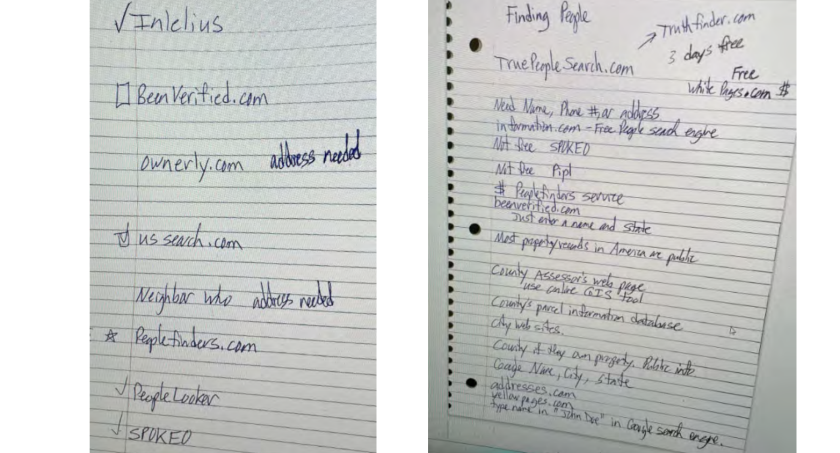 Intelius
BeenVerified.com
ownerly.com address needed
us search.com
Neighbor who address needed
Peoplefinders.com
PeopleLooker
SPOKEO
Finding People
Truthfinder.com
3 days free
TruePeopleSearch.com
Free
White Pages.com $
Need Name, Phone #, or address
information.com - Free People search engine
Not free SPOKEO
Not free Pipl
$ Peoplefinders service
beenverified.com
Just enter a name and state
Most property records in America are public
County Assessor's web page
use online GIS tool
County's parcel information database
city web sites.
County if they own property. Public info
Google Name, City, State
addresses.com
yellowpages.com
type name in "John Doe" in Google search engine.